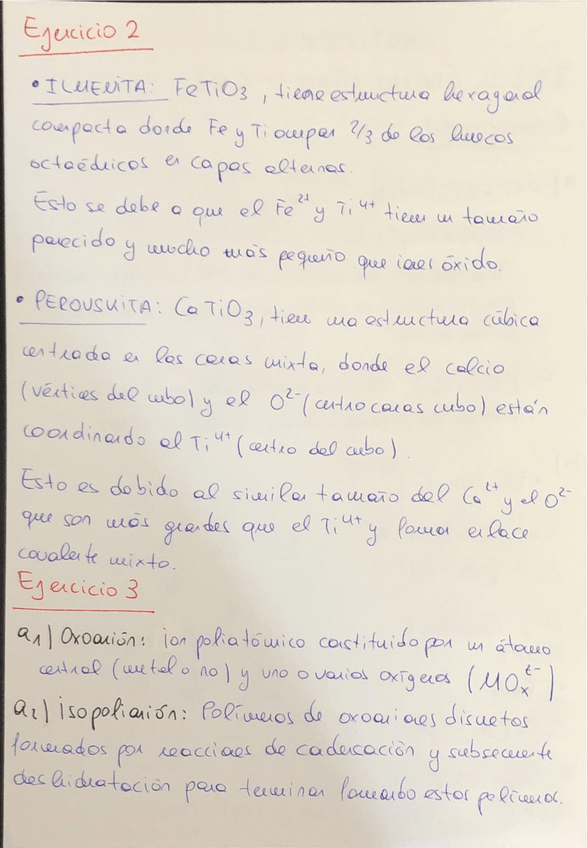 Ejercicio 2
• ILMENITA: FeTiO₃, tiene estructura hexagonal
compacta donde Fe y Ti ocupan 2/3 de los huecos
octaédricos en capas alternas.
Esto se debe a que el Fe²⁺ y Ti⁴⁺ tienen un tamaño
parecido y mucho más pequeño que iones óxido.
• PEROUSKITA: CaTiO₃, tiene una estructura cúbica
centrada en las caras mixta, donde el calcio
(vértices del cubo) y el O²⁻ (centro caras cubo) están
coordinando al Ti⁴⁺ (centro del cubo).
Esto es debido al similar tamaño del Ca²⁺ y el O²⁻
que son más grandes que el Ti⁴⁺ y forman enlace
covalente mixto.
Ejercicio 3
a₁) Oxoanión: ion poliatómico constituido por un átomo
central (metal o no) y uno o varios oxígenos (MOₓᵗ⁻)
a₂) Isopolianión: Polímeros de oxoaniones disueltos
formados por reacciones de condensación y subsecuente
deshidratación para terminar formando estos polímeros.